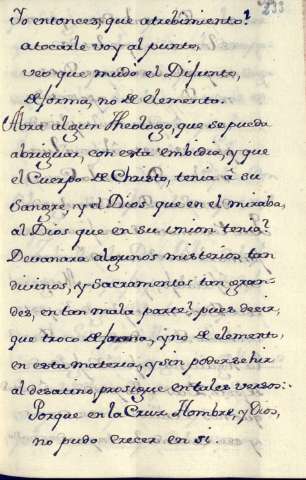 233
Yo entonces, que atrebimiento?
atocarle voy al punto,
veo que mudo el Difunto,
de forma, no de elemento.
Abra algun Theologo, que se pueda
abriguar, con esta embidia, y que
el Cuerpo de Christo, tenia â su
Sangre, y el Dios que en el miraba,
al Dios que en su union tenia?
Devanara algunos misterios tan
divinos, y Sacramentos tan gran-
des, en tan mala parte? pues decir,
que troco de forma, y no de elemento,
en esta materia, y sin poderse hir
al desatino, prosigue en tales versos:
Porque en la Cruz, Hombre, y Dios,
no pudo crecer en si.